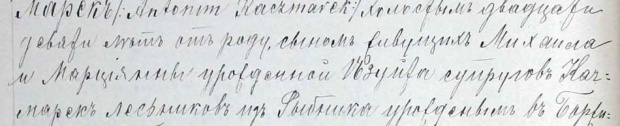 марскъ /: Antonim Kaczmarek :/ холостымъ двадцати
девяти лѣтъ отъ роду, сыномъ живущихъ Михаила
и Марціянны урожденной супруговъ Кач-
марекъ лесниковъ изъ Рыбника урожденымъ въ